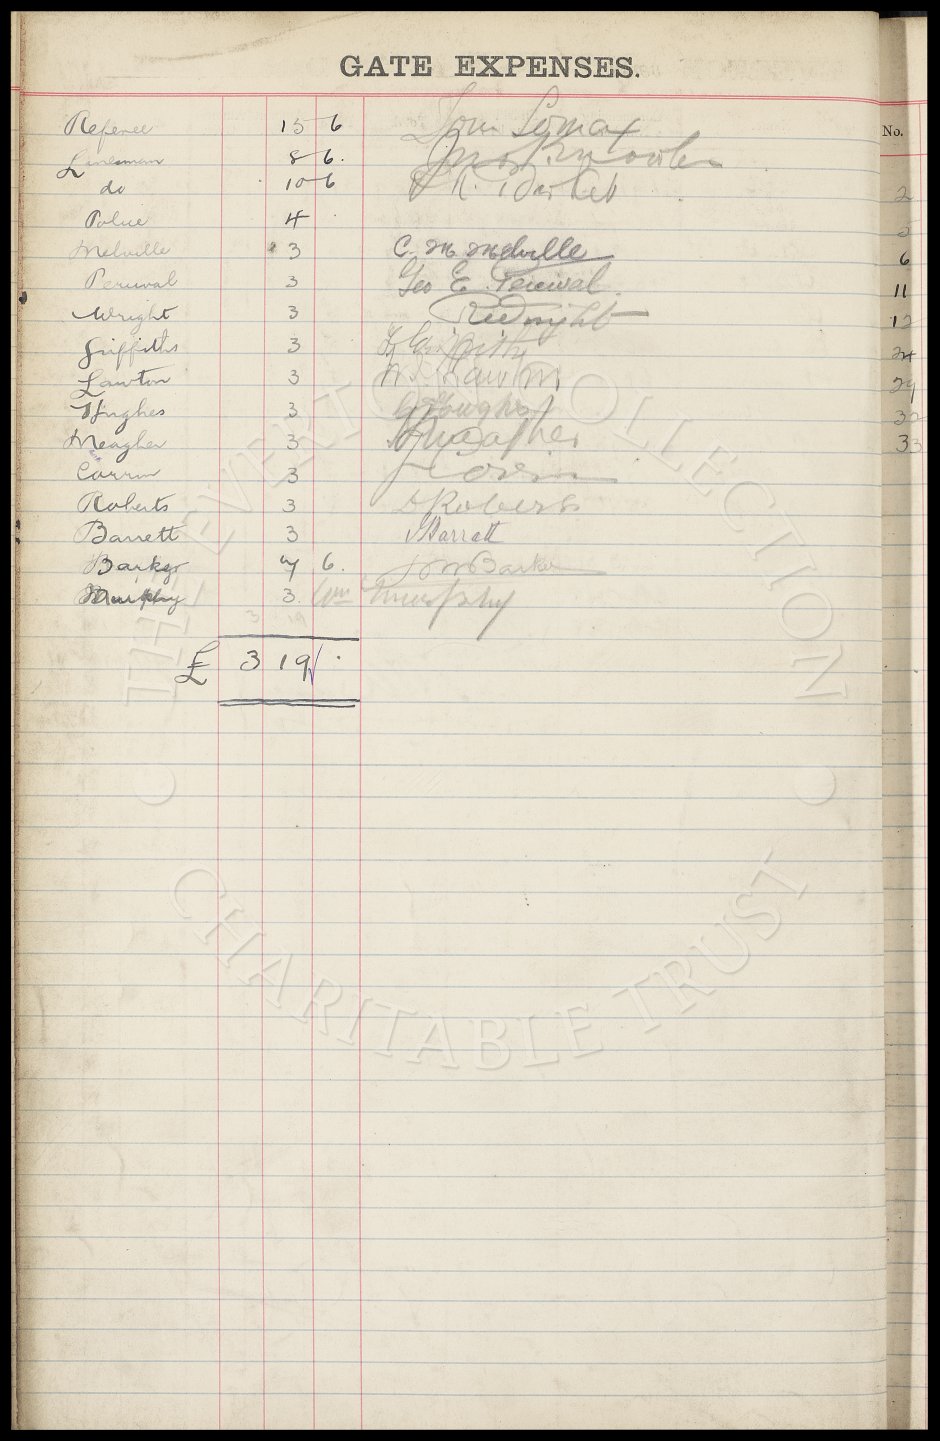 GATE EXPENSES.
No.
Referee 15 6 Tom Lomax
Linesman 8 6. Jno Knowles
do 10 6
2
Police 4
2
Melville 3 C. M. Melville 6
Percival 3 Geo E. Percival 11
Wright 3 Wright 12
Griffiths 3 Griffiths 24
Lawton 3 W. Lawton 29
Hughes 3 G Hughes 32
Meagher 3 Meagher 33
Corrin 3 Corrin
Roberts 3 Roberts
Barrett 3 Barrett
Barker 7 6. Barker
Murphy 3. Wm Murphy
3 19
£ 3 19 .
THE EVERTON COLLECTION
CHARITABLE TRUST